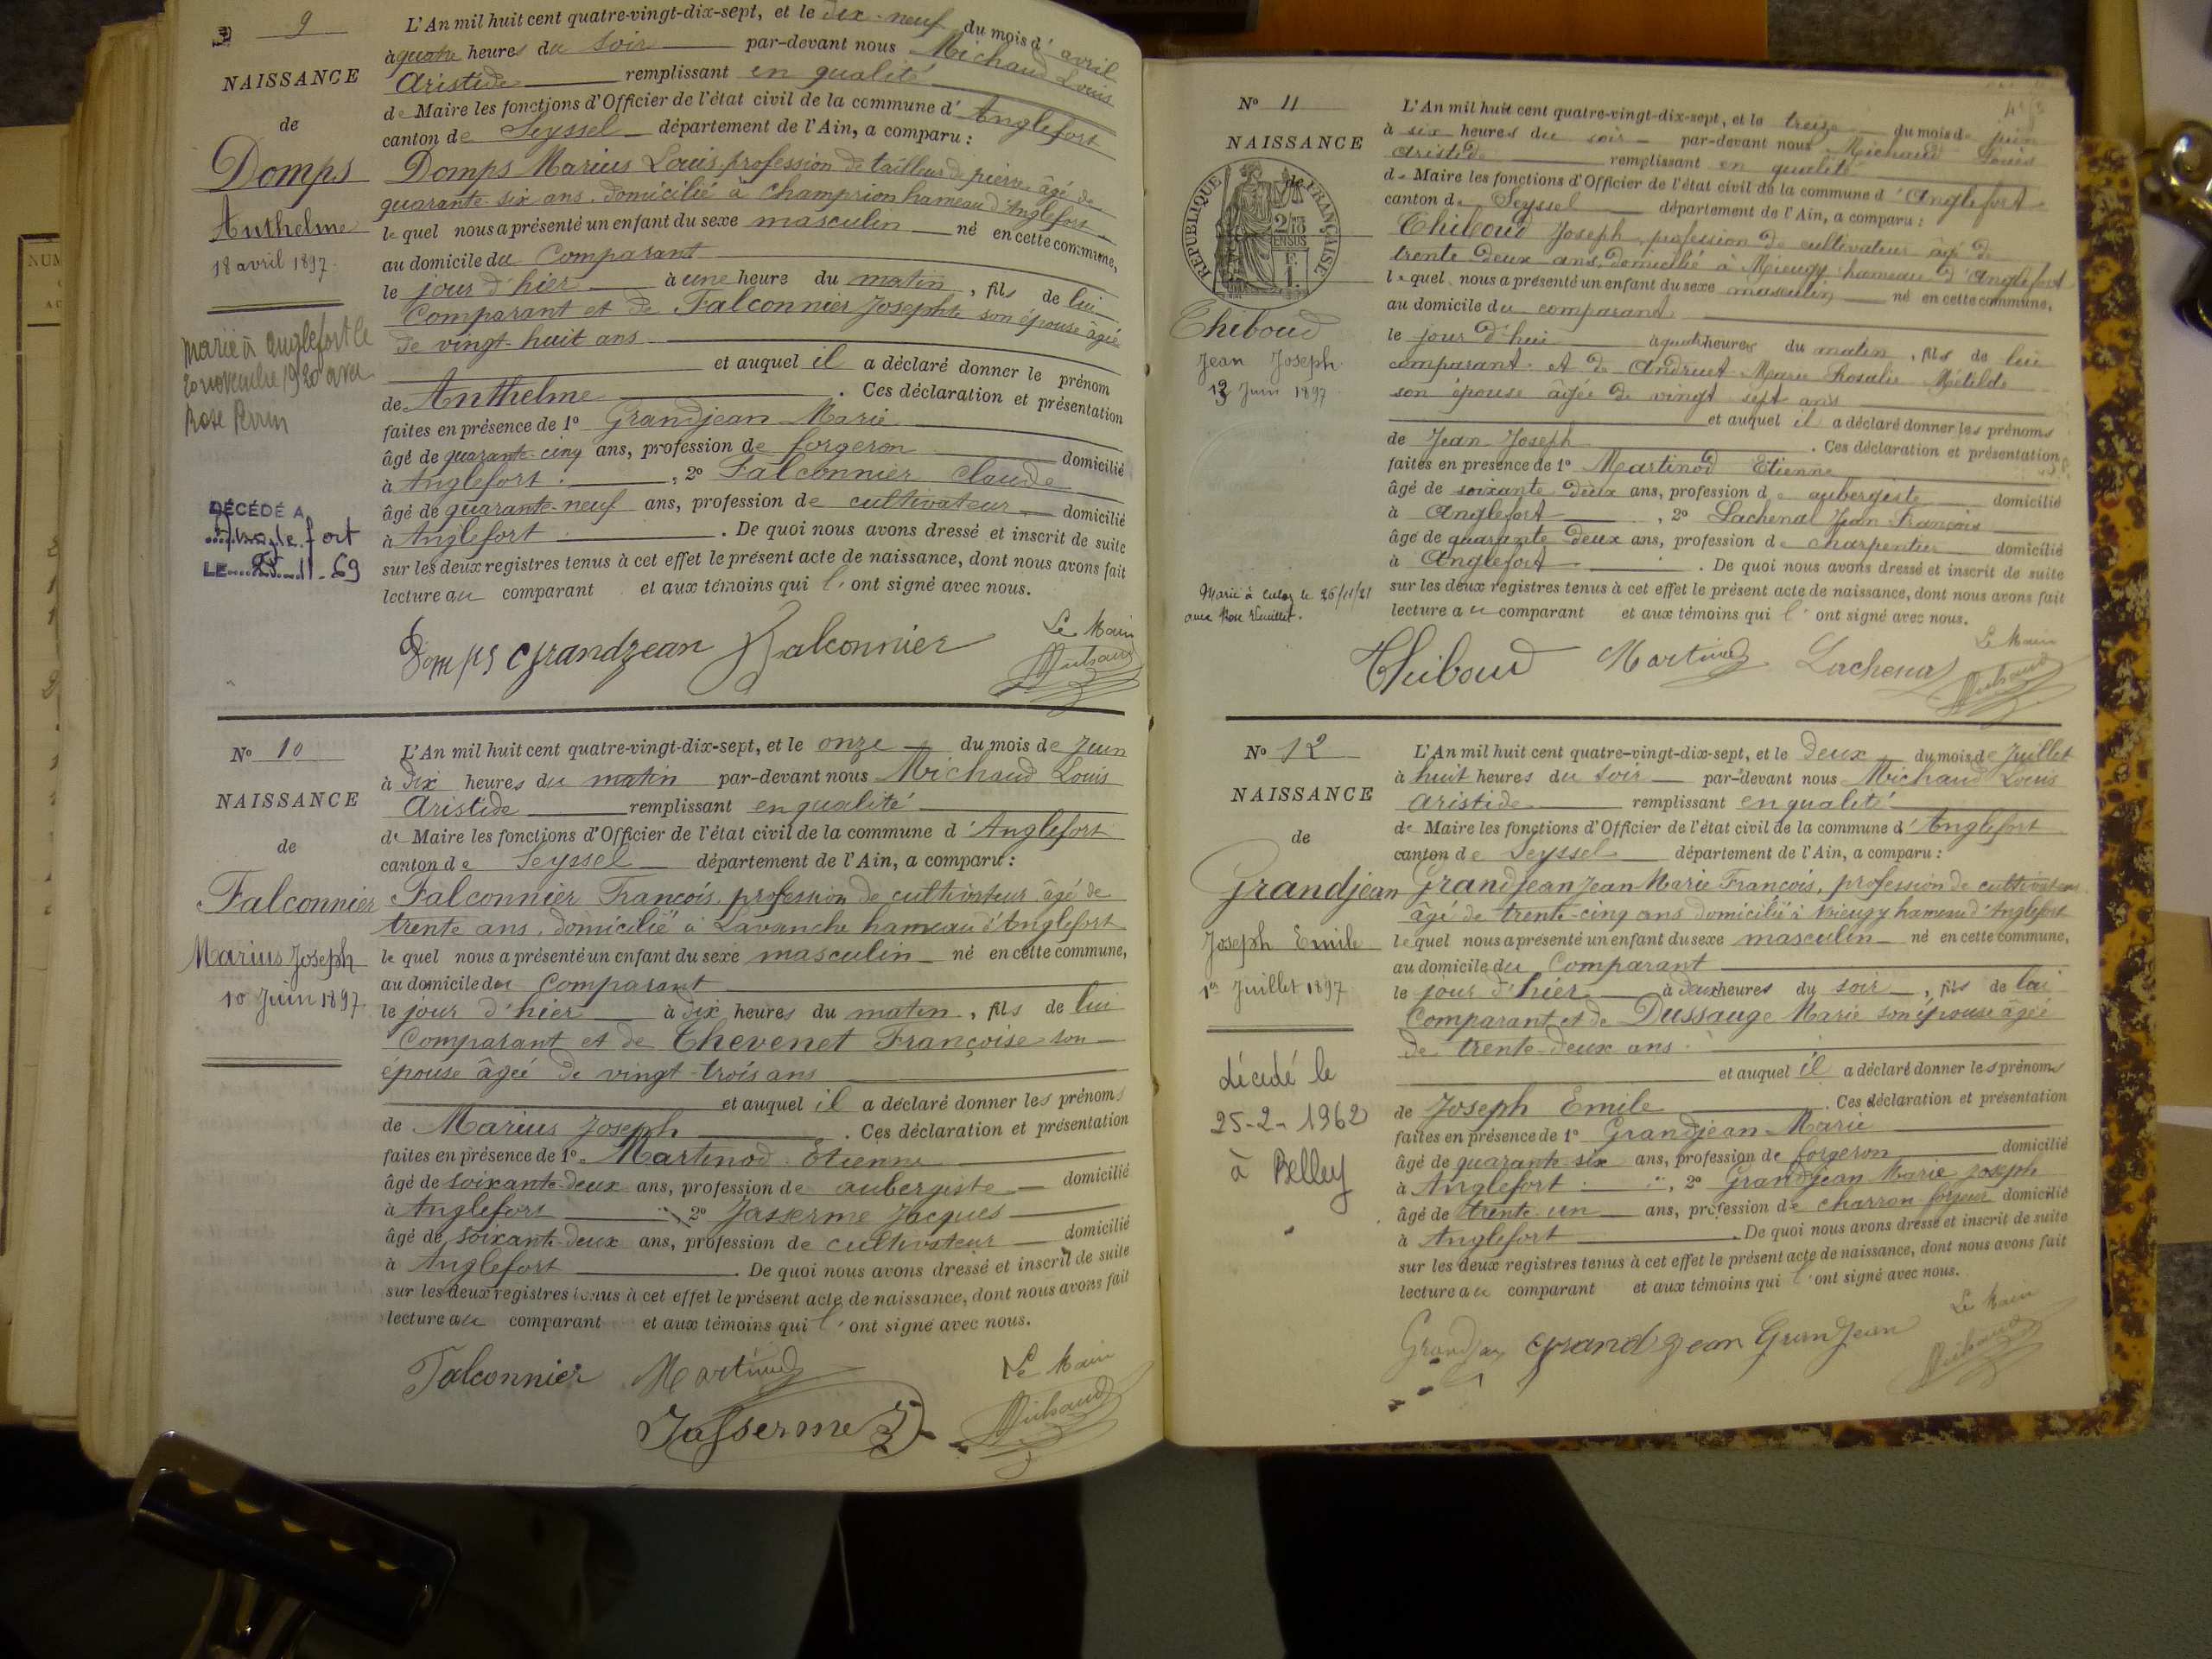 N° 9
NAISSANCE
de
Domps
Anthelme
18 avril 1897
Marié à Anglefort le
20 novembre 1920 avec
Rose Perrin
DÉCÉDÉ A
Anglefort
LE 25.11.69
L'An mil huit cent quatre-vingt-dix-sept, et le dix-neuf du mois d'avril
à quatre heures du soir par-devant nous Michaud Louis
Aristide remplissant en qualité
de Maire les fonctions d'Officier de l'état civil de la commune d'Anglefort
canton de Seyssel département de l'Ain, a comparu :
Domps Marius Louis, profession de tailleur de pierre âgé de
quarante-six ans, domicilié à Champrion hameau d'Anglefort
lequel nous a présenté un enfant du sexe masculin né en cette commune,
au domicile du Comparant
le jour d'hier à une heure du matin, fils de lui
Comparant et de Falconnier Josephte son épouse âgée
de vingt-huit ans
et auquel il a déclaré donner le prénom
de Anthelme. Ces déclaration et présentation
faites en présence de 1° Grandjean Marie
âgé de quarante-cinq ans, profession de forgeron domicilié
à Anglefort, 2° Falconnier Claude
âgé de quarante-neuf ans, profession de cultivateur domicilié
à Anglefort. De quoi nous avons dressé et inscrit de suite
sur les deux registres tenus à cet effet le présent acte de naissance, dont nous avons fait
lecture au comparant et aux témoins qui l'ont signé avec nous.
Le Maire
Domps Grandjean Falconnier Michaud
N° 10
NAISSANCE
de
Falconnier
Marius Joseph
10 Juin 1897.
L'An mil huit cent quatre-vingt-dix-sept, et le onze du mois de Juin
à dix heures du matin par-devant nous Michaud Louis
Aristide remplissant en qualité
de Maire les fonctions d'Officier de l'état civil de la commune d'Anglefort
canton de Seyssel département de l'Ain, a comparu :
Falconnier François, profession de cultivateur âgé de
trente ans, domicilié à Lavanche hameau d'Anglefort
lequel nous a présenté un enfant du sexe masculin né en cette commune,
au domicile du Comparant
le jour d'hier à dix heures du matin, fils de lui
Comparant et de Thevenet Françoise son
épouse âgée de vingt-trois ans
et auquel il a déclaré donner les prénoms
de Marius Joseph. Ces déclaration et présentation
faites en présence de 1° Martinod Etienne
âgé de soixante-deux ans, profession de aubergiste domicilié
à Anglefort, 2° Jasserme Jacques
âgé de soixante-deux ans, profession de cultivateur domicilié
à Anglefort. De quoi nous avons dressé et inscrit de suite
sur les deux registres tenus à cet effet le présent acte de naissance, dont nous avons fait
lecture au comparant et aux témoins qui l'ont signé avec nous.
Le Maire
Falconnier Martinod
Jasserme J Michaud
N° 11
NAISSANCE
de
RÉPUBLIQUE FRANÇAISE
2/10
EN SUS
1 F.
Thiboud
Jean Joseph
13 Juin 1897
Marié à Culoz le 26/11/21
avec Rose
L'An mil huit cent quatre-vingt-dix-sept, et le treize du mois de juin
à six heures du soir par-devant nous Michaud Louis
Aristide remplissant en qualité
de Maire les fonctions d'Officier de l'état civil de la commune d'Anglefort
canton de Seyssel département de l'Ain, a comparu :
Thiboud Joseph, profession de cultivateur âgé de
trente deux ans, domicilié à Mieugy hameau d'Anglefort
lequel nous a présenté un enfant du sexe masculin né en cette commune,
au domicile du comparant
le jour d'hui à quatre heures du matin, fils de lui
comparant et de Andruet Marie Rosalie Métilde
son épouse âgée de vingt-sept ans
et auquel il a déclaré donner les prénoms
de Jean Joseph. Ces déclaration et présentation
faites en présence de 1° Martinod Etienne
âgé de soixante deux ans, profession de aubergiste domicilié
à Anglefort, 2° Lachenal Jean François
âgé de quarante deux ans, profession de charpentier domicilié
à Anglefort. De quoi nous avons dressé et inscrit de suite
sur les deux registres tenus à cet effet le présent acte de naissance, dont nous avons fait
lecture au comparant et aux témoins qui l'ont signé avec nous.
Le Maire
Thiboud Martinod Lachenal Michaud
N° 12
NAISSANCE
de
Grandjean
Joseph Emile
1er Juillet 1897
décédé le
25-2-1962
à Belley
L'An mil huit cent quatre-vingt-dix-sept, et le deux du mois de Juillet
à huit heures du soir par-devant nous Michaud Louis
Aristide remplissant en qualité
de Maire les fonctions d'Officier de l'état civil de la commune d'Anglefort
canton de Seyssel département de l'Ain, a comparu :
Grandjean Jean Marie François, profession de cultivateur
âgé de trente-cinq ans domicilié à Mieugy hameau d'Anglefort
lequel nous a présenté un enfant du sexe masculin né en cette commune,
au domicile du Comparant
le jour d'hier à deux heures du soir, fils de lui
Comparant et de Dussauge Marie son épouse âgée
de trente-deux ans
et auquel il a déclaré donner les prénoms
de Joseph Emile. Ces déclaration et présentation
faites en présence de 1° Grandjean Marie
âgé de quarante six ans, profession de forgeron domicilié
à Anglefort, 2° Grandjean Marie Joseph
âgé de trente un ans, profession de charron-forgeur domicilié
à Anglefort. De quoi nous avons dressé et inscrit de suite
sur les deux registres tenus à cet effet le présent acte de naissance, dont nous avons fait
lecture au comparant et aux témoins qui l'ont signé avec nous.
Le Maire
Grandjean Grandjean GranJean Michaud